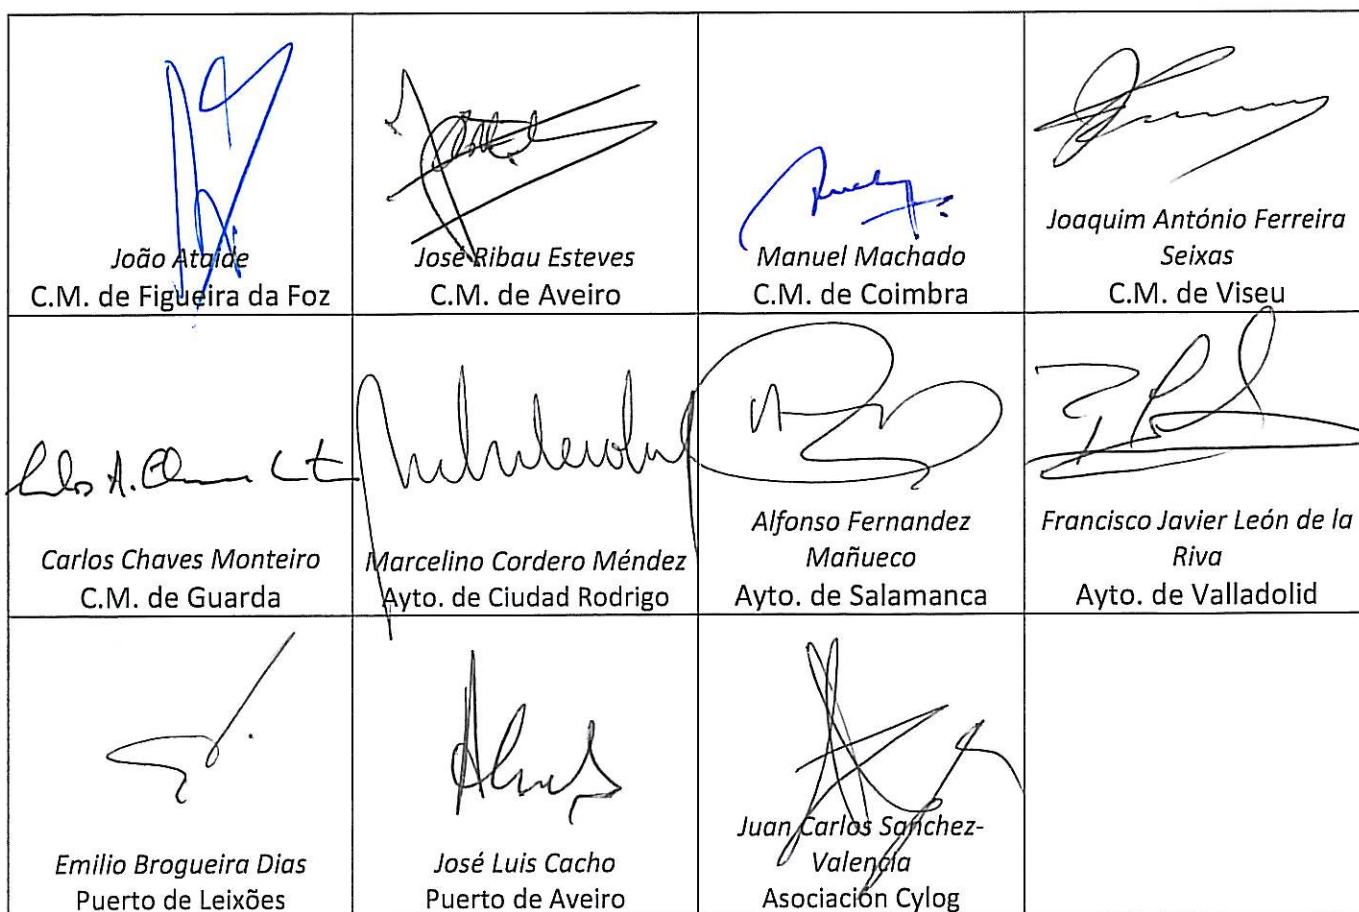 João Ataide
C.M. de Figueira da Foz
José Ribau Esteves
C.M. de Aveiro
Manuel Machado
C.M. de Coimbra
Joaquim António Ferreira
Seixas
C.M. de Viseu
Carlos Chaves Monteiro
C.M. de Guarda
Marcelino Cordero Méndez
Ayto. de Ciudad Rodrigo
Alfonso Fernandez
Mañueco
Ayto. de Salamanca
Francisco Javier León de la
Riva
Ayto. de Valladolid
Emilio Brogueira Dias
Puerto de Leixões
José Luis Cacho
Puerto de Aveiro
Juan Carlos Sanchez-
Valencia
Asociación Cylog